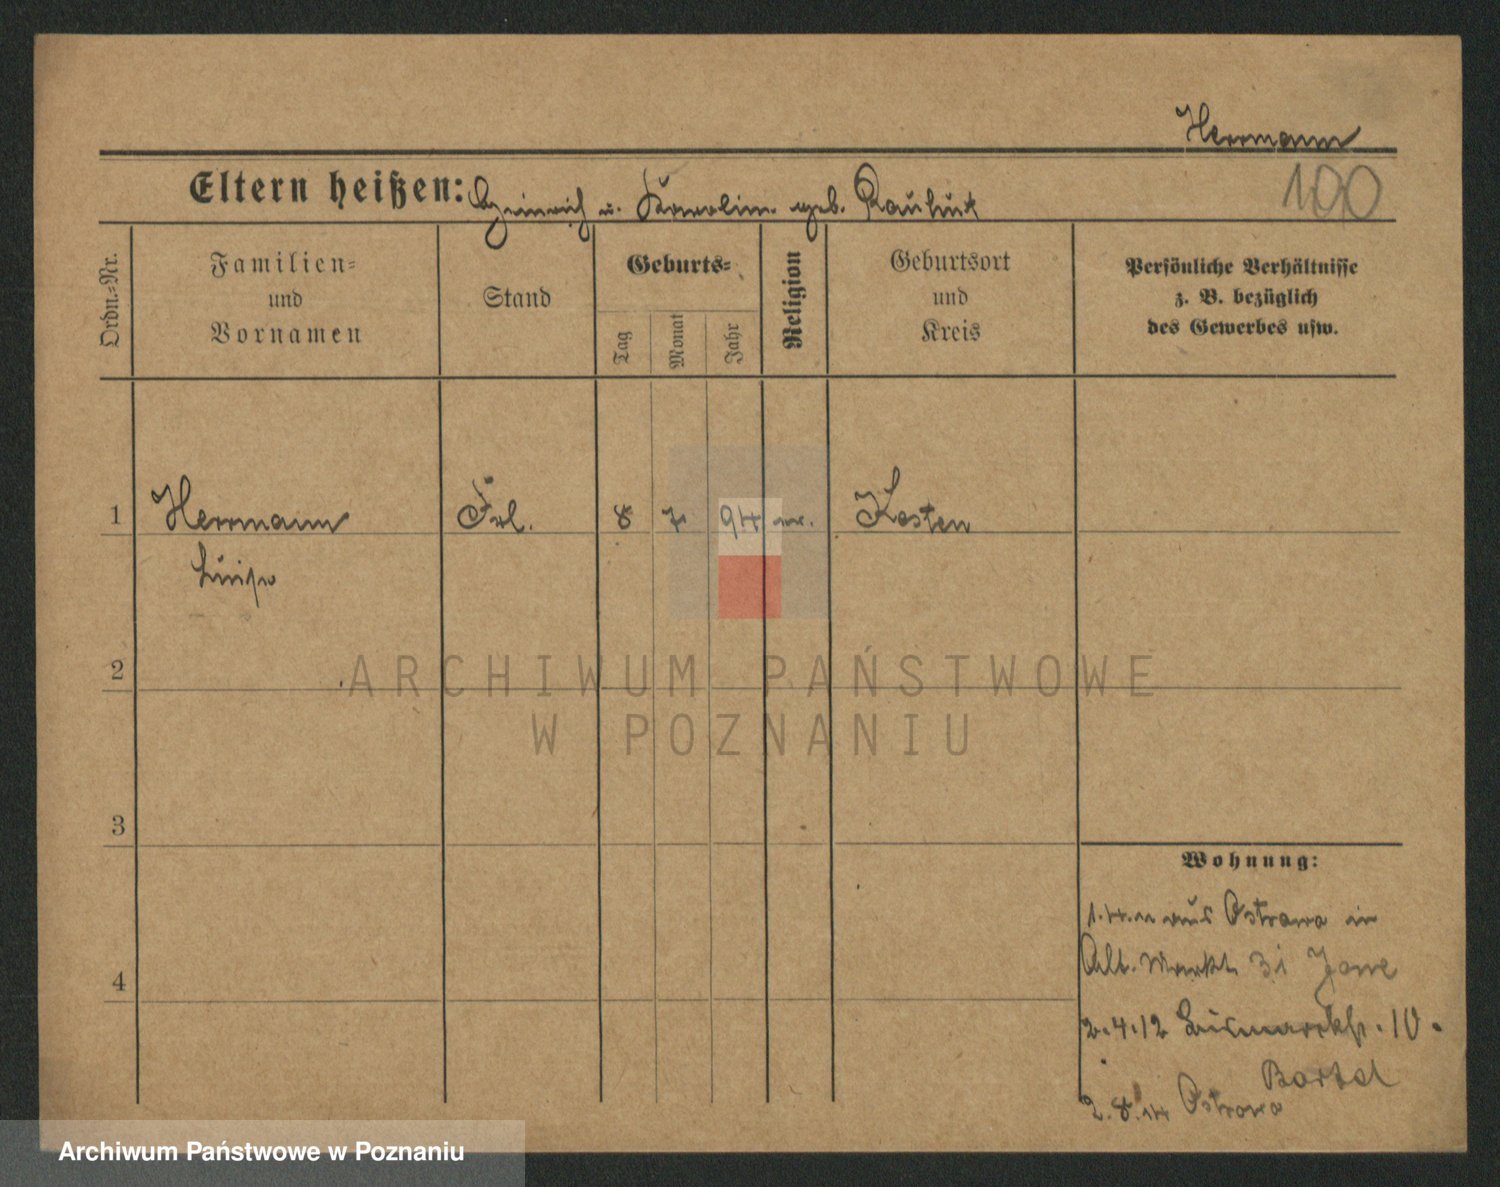 Herrmann
Eltern heißen: Heinrich u. Karolin geb. Rauhut
100
Ordn.=Nr.
Familien=
und
Vornamen
Stand
Geburts=
Tag
Monat
Jahr
Religion
Geburtsort
und
Kreis
Persönliche Verhältnisse
z. B. bezüglich
des Gewerbes usw.
1 Herrmann Frl. 8 7 94 Kosten
Luise
2
3
4
Wohnung:
1.4.11 aus Ostrowo in
Alt. Markt 31
2.4.12 Bismarckstr. 10.
Bartel
2.8.14 Ostrowo
ARCHIWUM PAŃSTWOWE
W POZNANIU
Archiwum Państwowe w Poznaniu